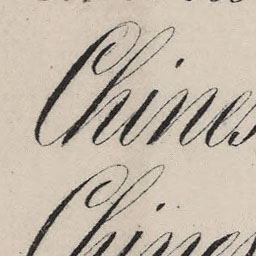 Chines
Chines